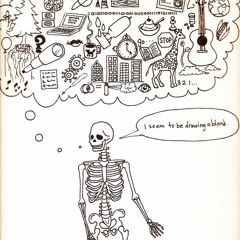 STOP
3 2 1 . . .
I seem to be drawing a blank.